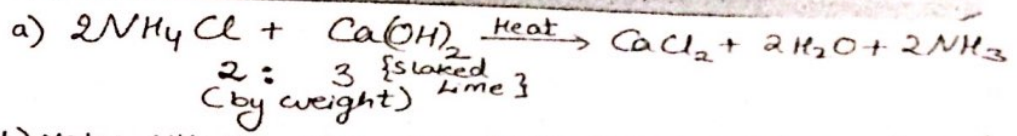 a) 2NH4Cl + Ca(OH)2 Heat→ CaCl2 + 2H2O + 2NH3
2 : 3 {slaked
(by weight) Lime}